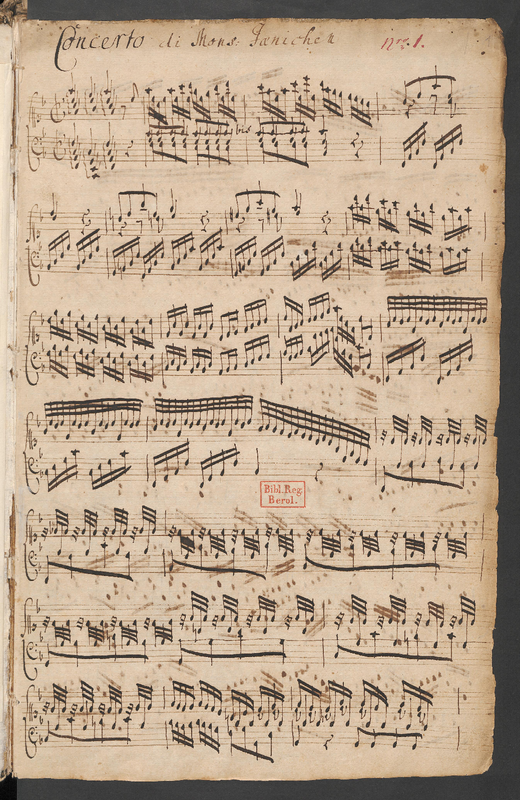 Concerto di Mons. Jænichen
nro. 1.
bis
Bibl. Reg.
Berol.